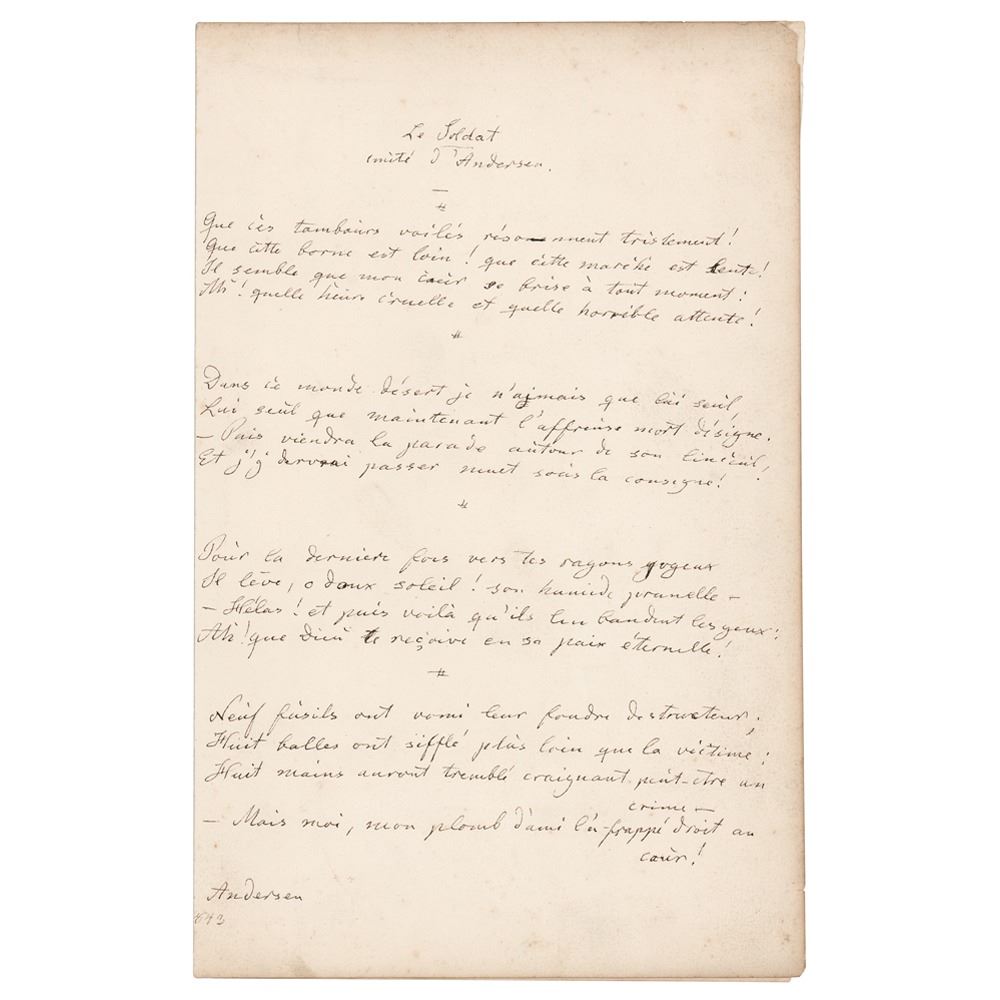 Le Soldat
imité d'Andersen.
Que ces tambours voilés résonnent tristement!
Que cette borne est loin! que cette marche est lente!
Il semble que mon cœur se brise à tout moment:
Ah! quelle heure cruelle et quelle horrible attente!
Dans ce monde désert je n'aimais que lui seul,
Lui seul que maintenant l'affreuse mort désigne.
– Puis viendra la parade autour de son linceuil,
Et j'y devrai passer muet sous la consigne!
Pour la derniere fois vers tes rayons joyeux
Il lève, o doux soleil! son humide prunelle –
– Hélas! et puis voilà qu'ils lui bandent les yeux:
Ah! que Dieu te reçoive en sa paix éternelle!
Neuf fusils ont vomi leur foudre destructeur;
Huit balles ont sifflé plus loin que la victime;
Huit mains auront tremblé craignant peut-etre un
crime –
– Mais moi, mon plomb d'ami l'a frappé droit au
cœur!
Andersen
843